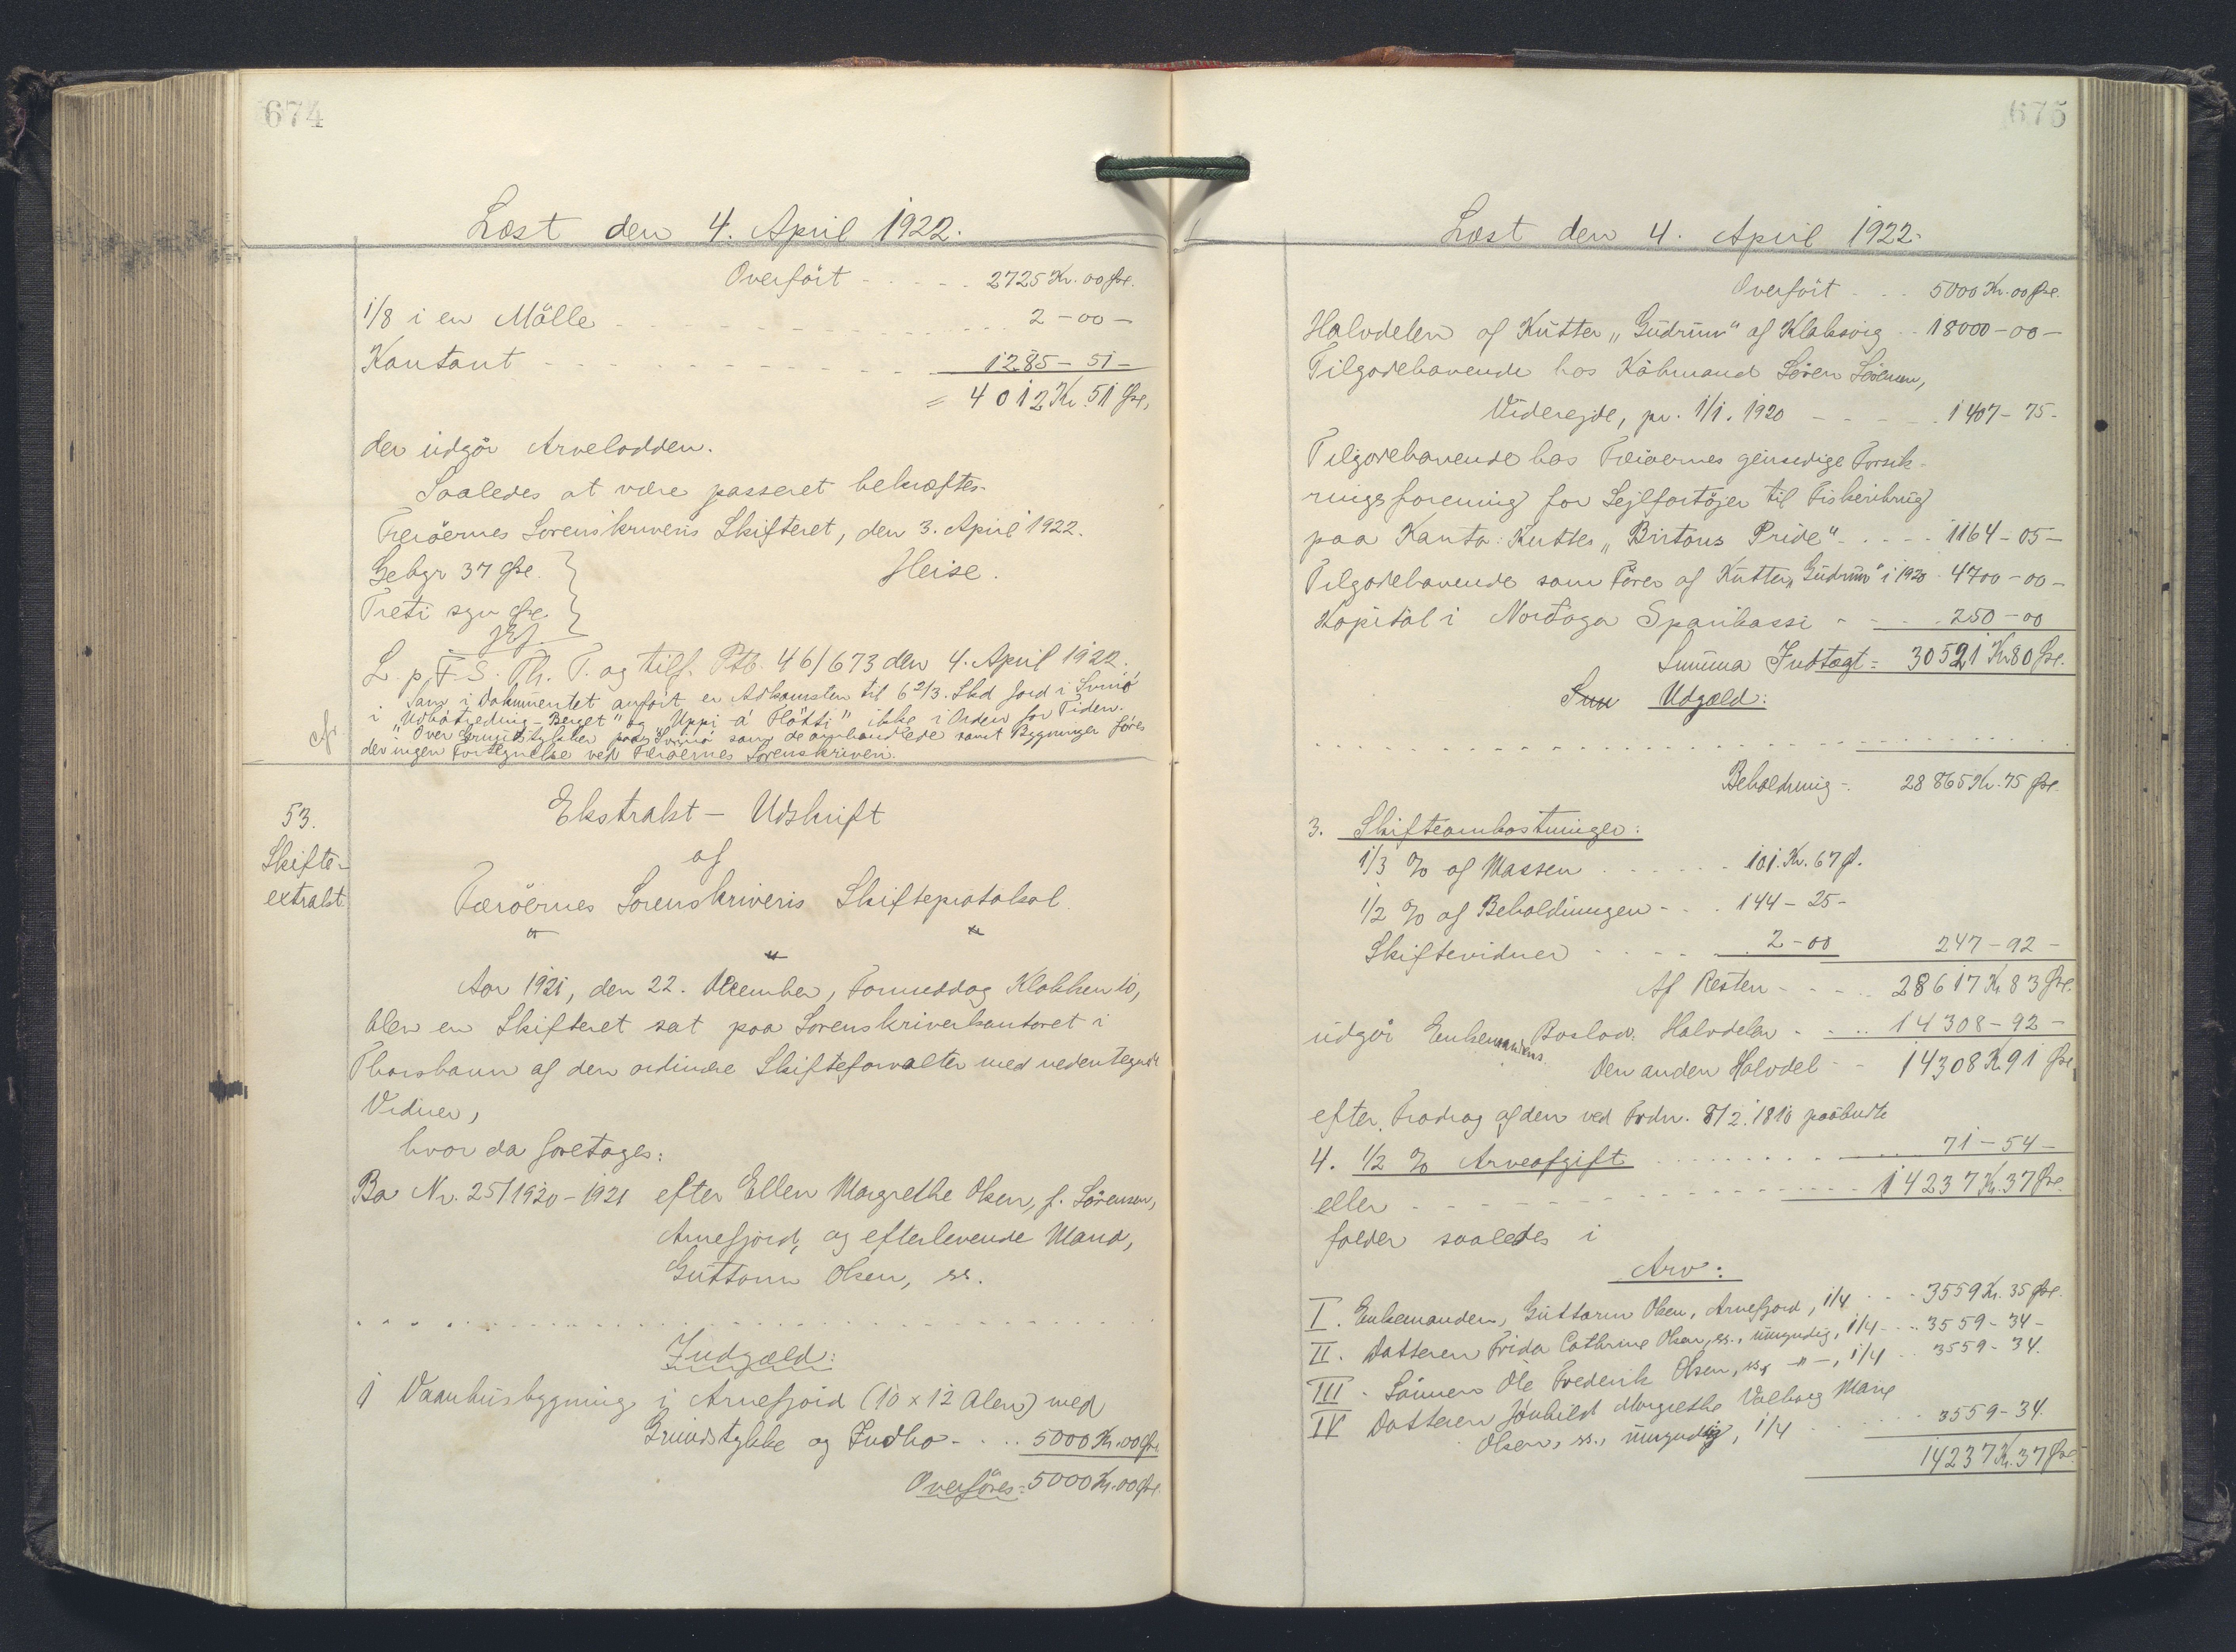 674
Læst den 4. April 1922.
Overført - - - - - 2725 Kr. 00 Øre.
1/8 i en Mölle - - - - - 2 - 00 -
Kontant - - - - - 1285 - 51 -
= 4012 Kr. 51 Øre,
der udgör Arvelodden.
Saaledes at være passeret bekræftes.
Færöernes Sorenskriveris Skifteret, den 3. April 1922.
Gebyr 37 Øre.
Heise.
Treti syv Øre
L. p. F. S. Th. T. og tilf. Ptb. 46/673 den 4. April 1922.
Som i Dokumentet anfört er Adkomsten til 6 2/3. Skd Jord i Svinö
i "Udbótreding - Berget" og "Uppi á Fløtti" ikke i Orden for Tiden.
cfr. Over Grundstykker paa Svinö som de omhandlede samt Bygninger föres
der ingen Fortegnelse ved Færöernes Sorenskriveri.
53.
Skifte-
extrakt
Ekstrakt - Udskrift
af
Færöernes Sorenskriveris Skifteprotokol.
Aar 1921, den 22. December, Formiddag Klokken 10,
blev en Skifteret sat paa Sorenskriverkontoret i
Thorshavn af den ordinære Skifteforvalter med nedentegnede
Vidner,
hvor da foretoges:
Bo Nr. 25/1920-1921 efter Ellen Margrethe Olsen, f. Sörensen,
Arnefjord, og efterlevende Mand,
Guttorm Olsen, ss.
Indgæld:
1 Vaanhusbygning i Arnefjord (10 x 12 Alen) med
Grundstykke og Indbo - - - 5000 Kr. 00 Øre.
Overföres: 5000 Kr. 00 Øre.
675
Læst den 4. April 1922.
Overfört - - - 5000 Kr. 00 Øre.
Halvdelen af Kutter "Gudrun" af Klaksvig - - 18000 - 00 -
Tilgodehavende hos Köbmand Sören Sörensen,
Viderejde, pr. 1/1. 1920 - - - - 1407 - 75 -
Tilgodehavende hos Færöernes gensidige Forsik-
ringsforening for Sejlfartöjer til Fiskeribrug
paa Konto: Kutter "Birtons Pride" - - - - 1164 - 05 -
Tilgodehavende som Förer af Kutter "Gudrun" i 1920 - 4700 - 00 -
Kapital i Nordoya Sparikassi - - - - 250 - 00
Summa Indtægt = 30521 Kr 80 Øre.
Sum Udgæld:
Beholdning - 28865 Kr. 75 Øre.
3. Skifteomkostninger:
1/3 % af Massen - - - - - 101. Kr. 67 Ø.
1/2 % af Beholdningen - - - 144 - 25 -
Skiftevidner - - - - - 2 - 00 247 - 92 -
Af Resten - - - - 28617 Kr 83 Øre.
udgör Enkemandens Boslod: Halvdelen - - - - 14308 - 92 -
Den anden Halvdel - - 14308 Kr 91 Øre
efter Fradrag af den ved Frdn. 8/2. 1810 paabudte
4. 1/2 % Arveafgift - - - - - 71 - 54 -
eller - - - - - 14237 Kr. 37 Øre.
falder saaledes i
Arv:
I. Enkemanden, Guttorm Olsen, Arnefjord, 1/4 - - - 3559 Kr. 35 Øre.
II. Datteren Frida Cathrine Olsen, ss., umyndig, 1/4 - - - 3559 - 34 -
III - Sönnen Ole Frederik Olsen, ss, - " -, 1/4 - - 3559 - 34.
IV Datteren Jonhild Margrethe Valborg Marie
Olsen, ss., umyndig, 1/4 - - - - 3559 - 34.
14237 Kr. 37 Øre.